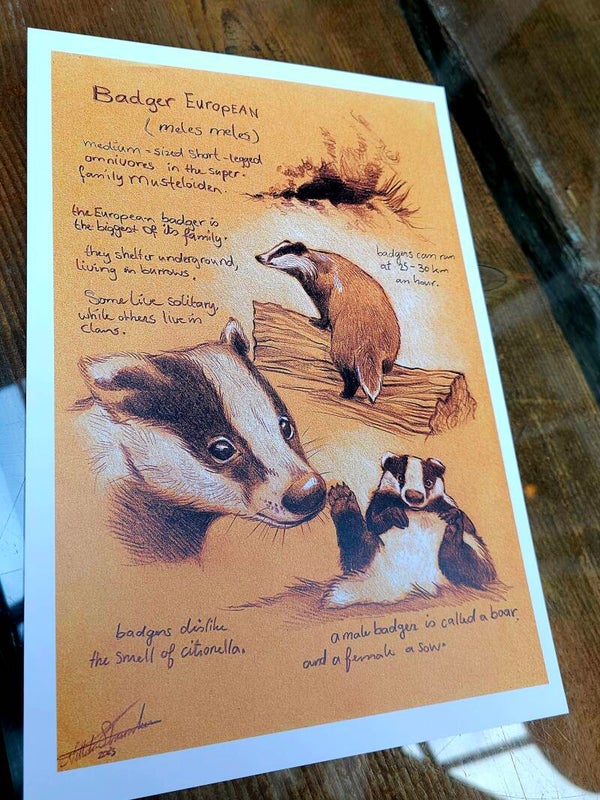 Badger EUROPEAN
(meles meles)
medium-sized short-legged
omnivores in the super-
family Musteloiden.
the European badger is
the biggest of its family.
they shelter underground,
living in burrows.
Some live solitary,
while others live in
clans.
badgers can run
at 25-30 km
an hour.
badgers dislike
the smell of citronella.
a male badger is called a boar,
and a female a sow.
2023